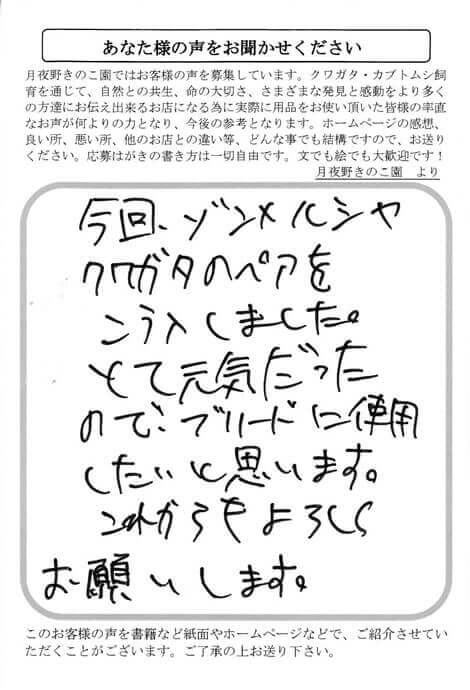 あなた様の声をお聞かせください
月夜野きのこ園ではお客様の声を募集しています。クワガタ・カブトムシ飼
育を通じて、自然との共生、命の大切さ、さまざまな発見と感動をより多く
の方達にお伝え出来るお店になる為に実際に用品をお使い頂いた皆様の率直
なお声が何よりの力となり、今後の参考となります。ホームページの感想、
良い所、悪い所、他のお店との違い等、どんな事でも結構ですので、お送り
ください。応募はがきの書き方は一切自由です。文でも絵でも大歓迎です！
月夜野きのこ園　より
今回、ゾンメルシャ
クワガタのペアを
こう入しました。
とて元気だった
ので、ブリードに使用
したいと思います。
これからもよろしく
お願いします。
このお客様の声を書籍など紙面やホームページなどで、ご紹介させてい
ただくことがございます。ご了承の上お送り下さい。